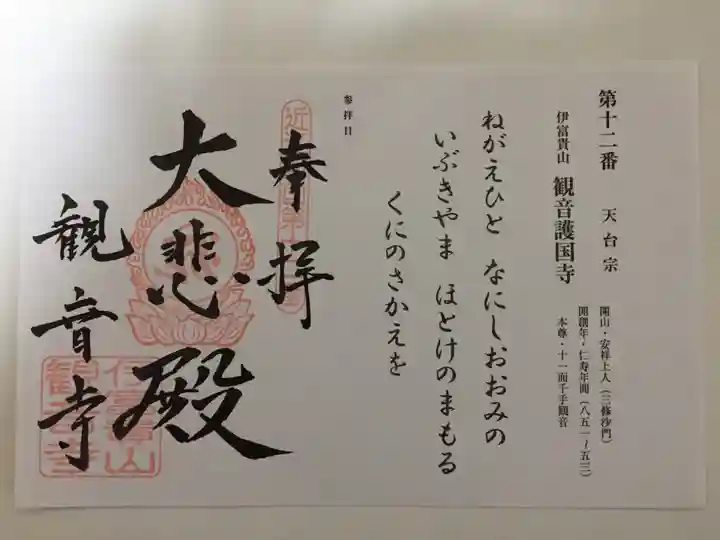 第十二番 天台宗
伊富貴山 観音護国寺
開山・安祥上人(三修沙門)
開創年・仁寿年間(八五一~五三)
本尊・十一面千手観音
ねがえひと なにしおおみの
いぶきやま ほとけのまもる
くにのさかえを
参拝日
奉拝
大悲殿
観音寺